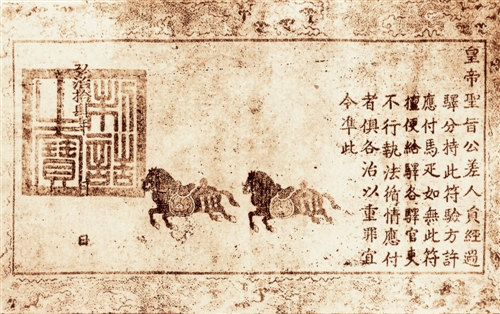 皇帝聖旨公差人員經過
驛分持此符驗方許
應付馬疋如無此符
擅便給驛各驛官吏
不行執法徇情應付
者俱各治以重罪宜
令準此
制誥
之寶
日